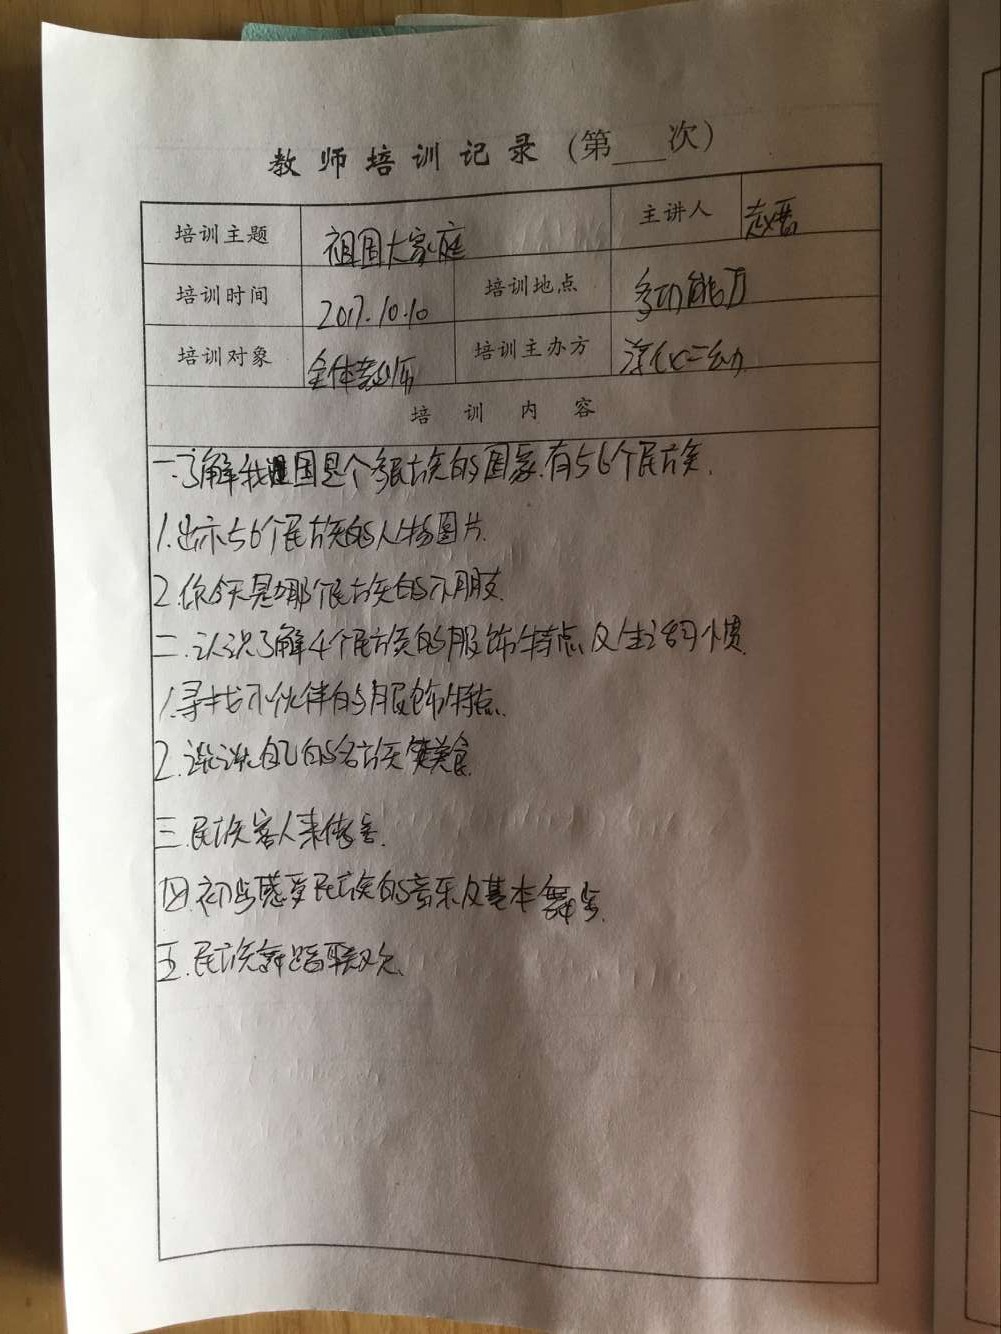 教师培训记录（第___次）
培训主题 祖国大家庭 主讲人
培训时间 2017.10.10 培训地点 多功能厅
培训对象 全体教师 培训主办方 淳化二幼
培训内容
一.了解我国是个多民族的国家.有56个民族.
1.出示56个民族的人物图片.
2.你今天是哪个民族的小朋友.
二.认识了解4个民族的服饰特点及生活习惯.
1.寻找小伙伴的服饰特点.
2.谈谈自己的名族美食
三.民族客人来做客.
四.初步感受民族的音乐及基本舞步.
五.民族舞蹈联欢.